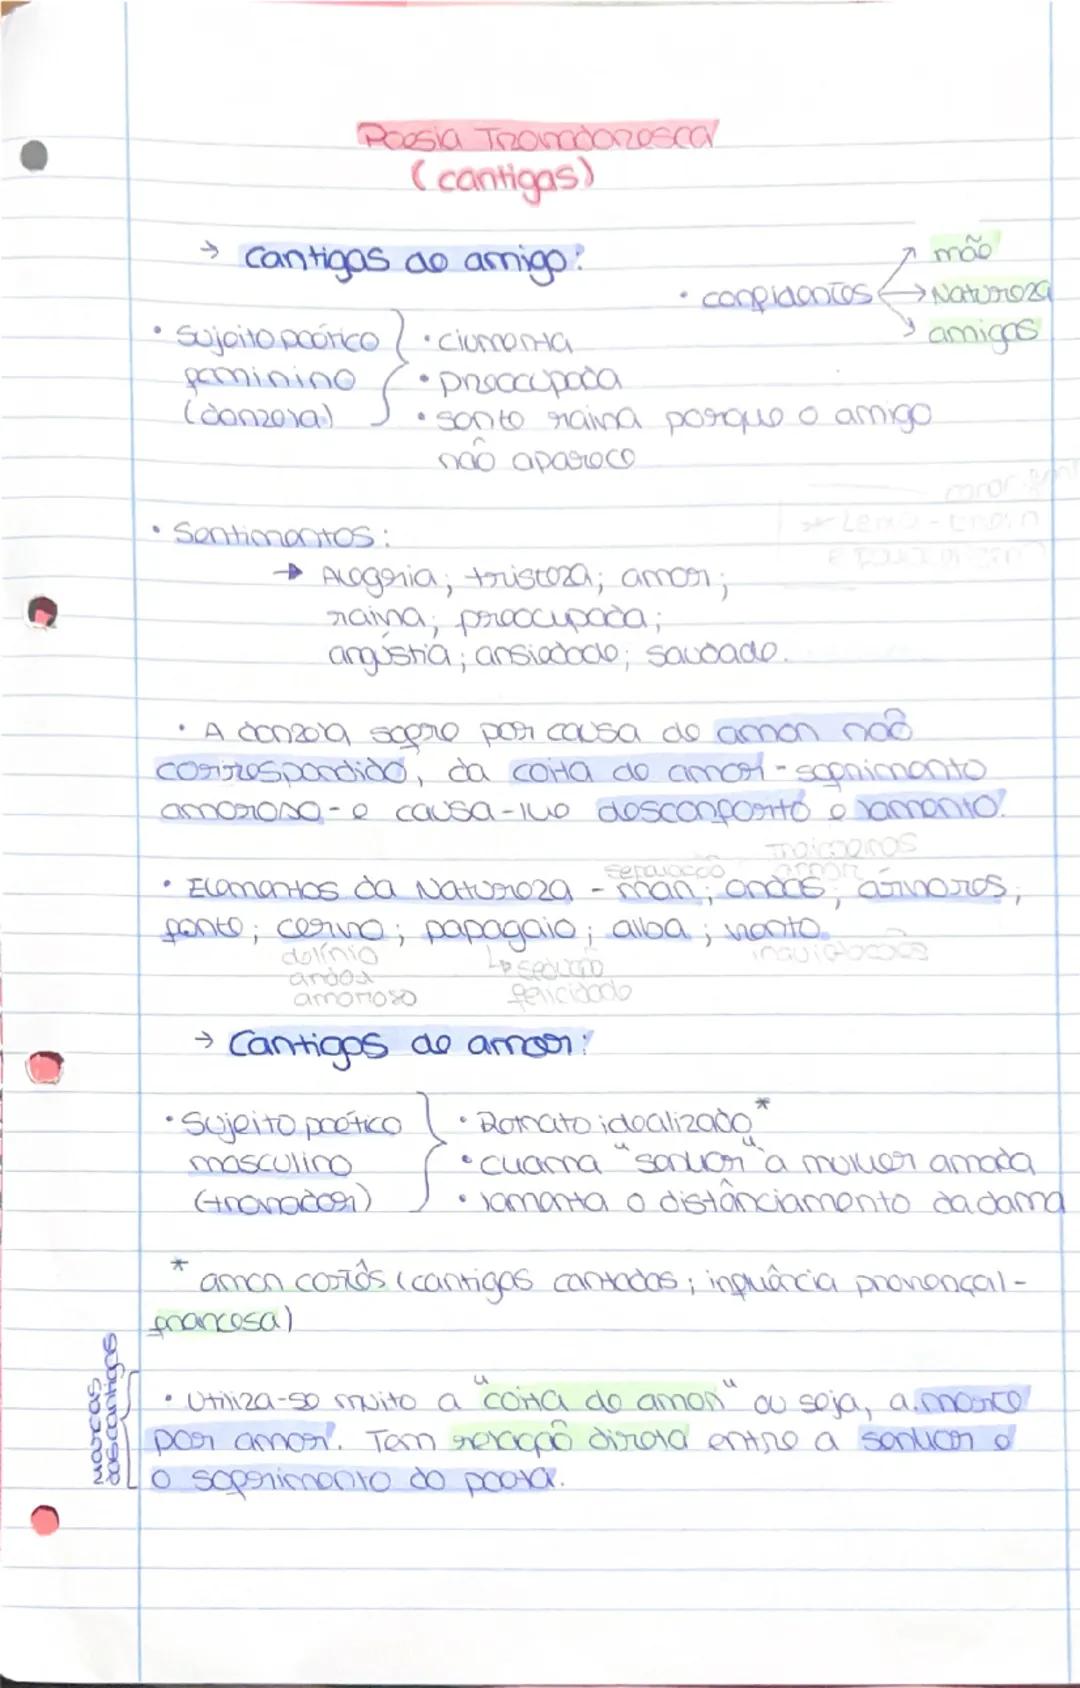 Poesia Trovadoresca
(cantigas)
→ Cantigas de amigo:
• confidentes
↗ mãe
→ Natureza
↘ amigas
• Sujeito poético
feminino
(donzela)
• ciumenta
• preocupada
• sente raiva porque o amigo
não aparece
• Sentimentos:
→ Alegria; tristeza; amor;
raiva; preocupada;
angústia; ansiedade; saudade.
• A donzela sofre por causa de amor não
correspondido, da coita de amor - sofrimento
amoroso - e causa-lhe desconforto e lamento.
separação
amor
• Elementos da Natureza - mar; ondas; árvores;
fonte; cervo; papagaio; alba; vento.
delínio
amoroso
↳ sedução
felicidade
inquietações
→ Cantigas de amor:
• Sujeito poético
masculino
(trovador)
• Retrato idealizado*
• chama "senhor" a mulher amada
• lamenta o distânciamento da dama
* amor cortês (cantigas cantadas; influência provençal -
francesa)
marcas
das cantigas
• Utiliza-se muito a "coita de amor" ou seja, a morte
por amor. Tem relação direta entre a senhor e
o sofrimento do poeta.